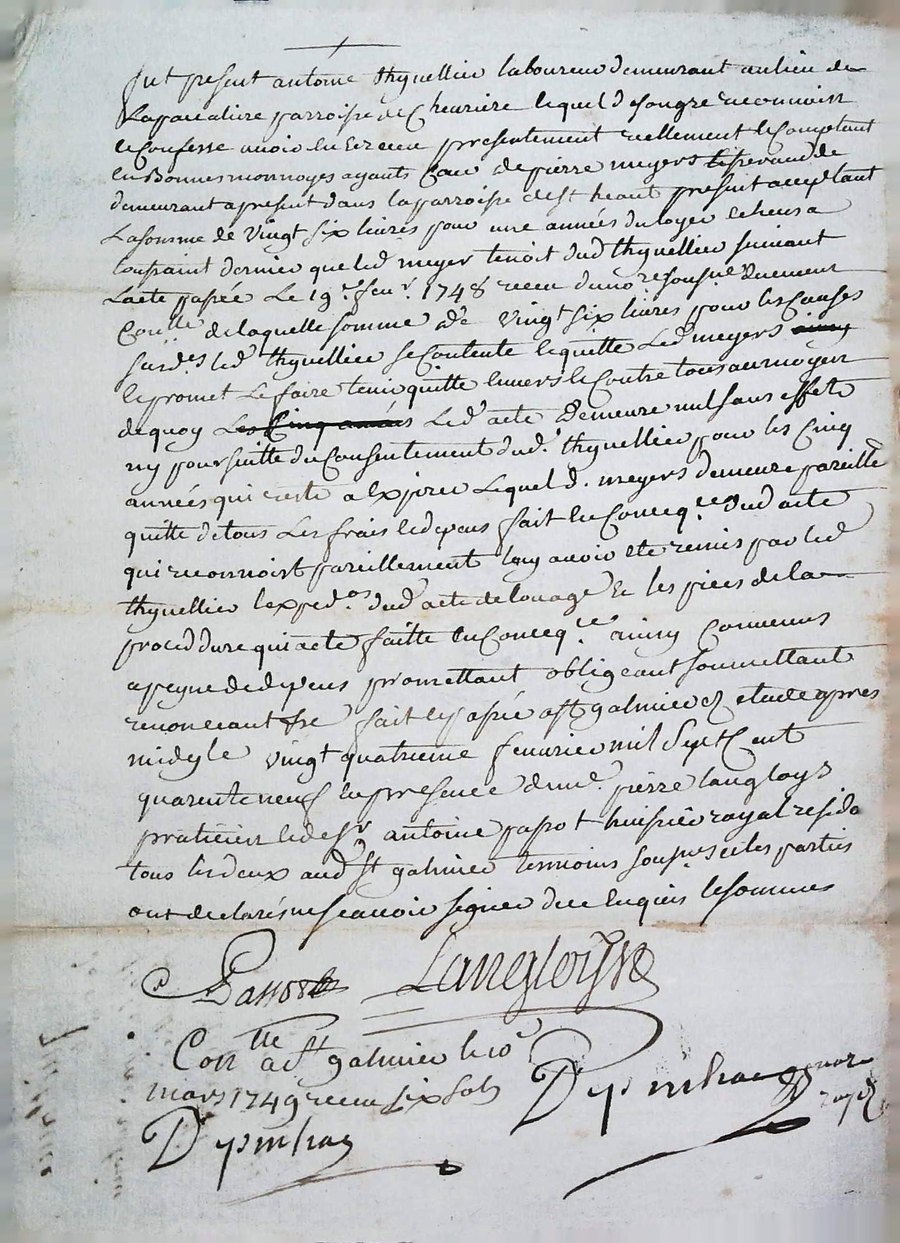 fut present antoine thynellier laboureur demeurant au lieu de
parroisse de Cheuriere lequel de son gre reconnoist
et Confesse auoir eu et receu presentement reellement et Comptant
en Bonnes monnoyes ayants Cour de pierre meyers
demeurant a present dans la parroisse de st heant present acceptant
La somme de Vingt six liures pour une années du loyer echeus a
toussaint dernier que led meyer tenoit dud thynellier suiuant
Lacte passée Le 19e feur. 1748 receu du nore sousne. duement
Coullé de laquelle somme de Vingt six liures pour les Causes
susdes led thynellier se Contente et quitte Led meyers ainsy
et promet Le faire tenir quitte enuers et Contre tous au moyen
de quoy Les Cinq années Led acte demeure nul sans effet
ny poursuitte du Consentement dud. thynellier pour les Cinq
années qui reste a expirer Lequel d. meyers demeure pareillet
quitte de tous Les frais et depens fait en Concequce dud acte
qui reconnoist pareillement luy auoir ete remis par led
thynellier lexpedon dud acte de louage Et les pieces de la
proceddure qui a ete faitte en Concequce ainsy Conuenus
a peyne de depens promettant obligeant soumettant
renonceant fre fait et passé a st galmier ez etude apres
midy le vingt quatrieme feurier mil sept Cent
quarente neuf en presence de me. pierre langloys
praticien et de sr antoine passot huissier royal reside
tous les deux aud st galmier temoins sousnes et les parties
ont declarés ne scauoir signer de ce enquis et sommes
Passot Langloys
Contlle a st galmier le 10e
mars 1749 receu six sols
Depinhac
Depinhac nore royal